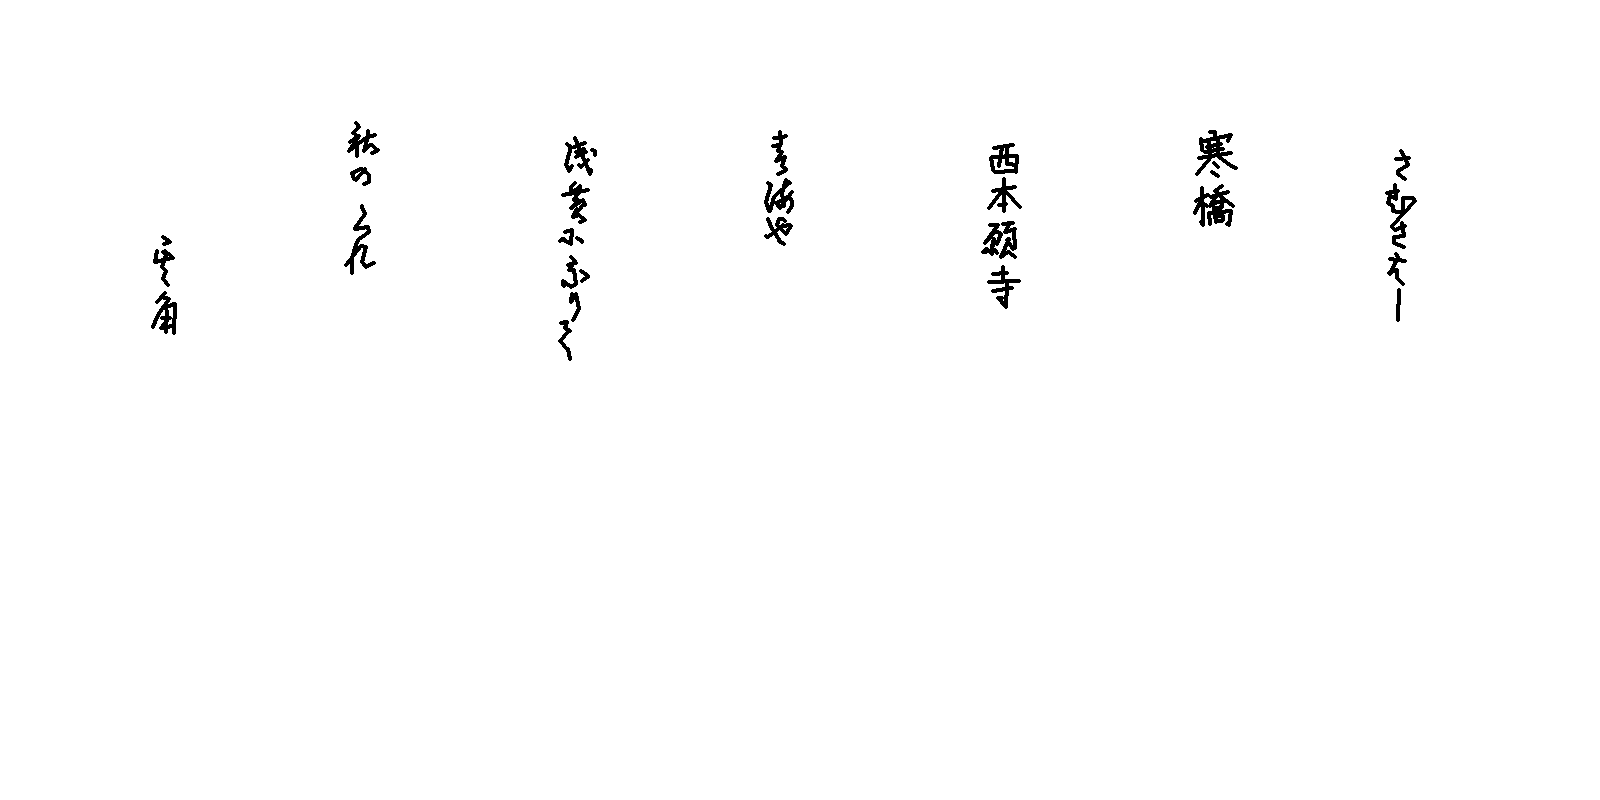 さむさはし
寒橋
西本願寺
青海や
浅黄になりて
秋のくれ
其角